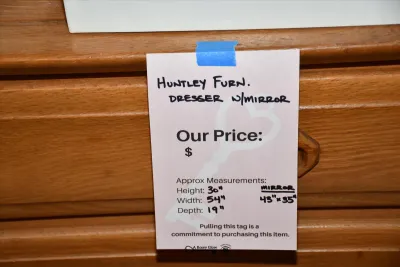 HUNTLEY FURN.
DRESSER W/MIRROR
Our Price:
$
Approx Measurements:
Height: 30" MIRROR
Width: 54" 43"x35"
Depth: 19"
Pulling this tag is a
commitment to purchasing this item.